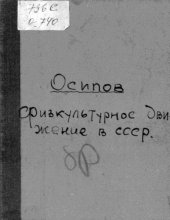 796С
О-740
Осипов
Физкультурное дви
жение в ссср.